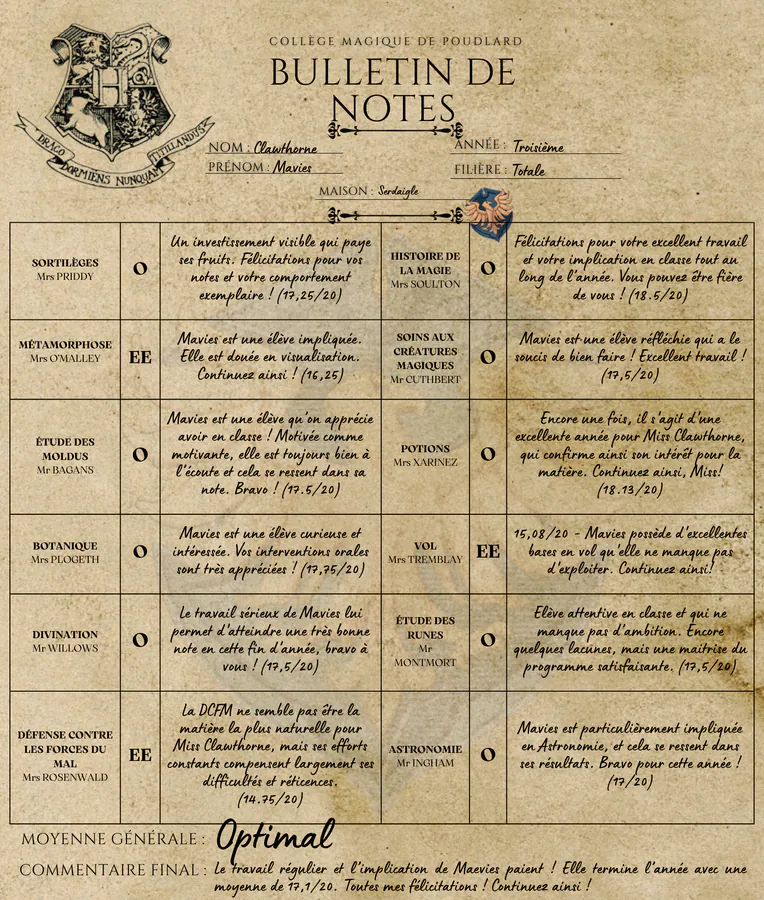 COLLÈGE MAGIQUE DE POUDLARD
BULLETIN DE
NOTES
DRACO DORMIENS NUNQUAM TITILLANDUS
NOM : Clawthorne
PRÉNOM : Mavies
ANNÉE : Troisième
FILIÈRE : Totale
MAISON : Serdaigle
SORTILÈGES
Mrs PRIDDY
O
Un investissement visible qui paye
ses fruits. Félicitations pour vos
notes et votre comportement
exemplaire ! (17,25/20)
HISTOIRE DE
LA MAGIE
Mrs SOULTON
O
Félicitations pour votre excellent travail
et votre implication en classe tout au
long de l'année. Vous pouvez être fière
de vous ! (18.5/20)
MÉTAMORPHOSE
Mrs O'MALLEY
EE
Mavies est une élève impliquée.
Elle est douée en visualisation.
Continuez ainsi ! (16,25)
SOINS AUX
CRÉATURES
MAGIQUES
Mr CUTHBERT
O
Mavies est une élève réfléchie qui a le
soucis de bien faire ! Excellent travail !
(17,5/20)
ÉTUDE DES
MOLDUS
Mr BAGANS
O
Mavies est une élève qu'on apprécie
avoir en classe ! Motivée comme
motivante, elle est toujours bien à
l'écoute et cela se ressent dans sa
note. Bravo ! (17.5/20)
POTIONS
Mrs XARINEZ
O
Encore une fois, il s'agit d'une
excellente année pour Miss Clawthorne,
qui confirme ainsi son intérêt pour la
matière. Continuez ainsi, Miss!
(18.13/20)
BOTANIQUE
Mrs PLOGETH
O
Mavies est une élève curieuse et
intéressée. Vos interventions orales
sont très appréciées ! (17,75/20)
VOL
Mrs TREMBLAY
EE
15,08/20 - Mavies possède d'excellentes
bases en vol qu'elle ne manque pas
d'exploiter. Continuez ainsi!
DIVINATION
Mr WILLOWS
O
Le travail sérieux de Mavies lui
permet d'atteindre une très bonne
note en cette fin d'année, bravo à
vous ! (17,5/20)
ÉTUDE DES
RUNES
Mr
MONTMORT
O
Elève attentive en classe et qui ne
manque pas d'ambition. Encore
quelques lacunes, mais une maitrise du
programme satisfaisante. (17,5/20)
DÉFENSE CONTRE
LES FORCES DU
MAL
Mrs ROSENWALD
EE
La DCFM ne semble pas être la
matière la plus naturelle pour
Miss Clawthorne, mais ses efforts
constants compensent largement ses
difficultés et réticences.
(14.75/20)
ASTRONOMIE
Mr INGHAM
O
Mavies est particulièrement impliquée
en Astronomie, et cela se ressent dans
ses résultats. Bravo pour cette année !
(17/20)
MOYENNE GÉNÉRALE : Optimal
COMMENTAIRE FINAL : Le travail régulier et l'implication de Maevies paient ! Elle termine l'année avec une
moyenne de 17,1/20. Toutes mes félicitations ! Continuez ainsi !